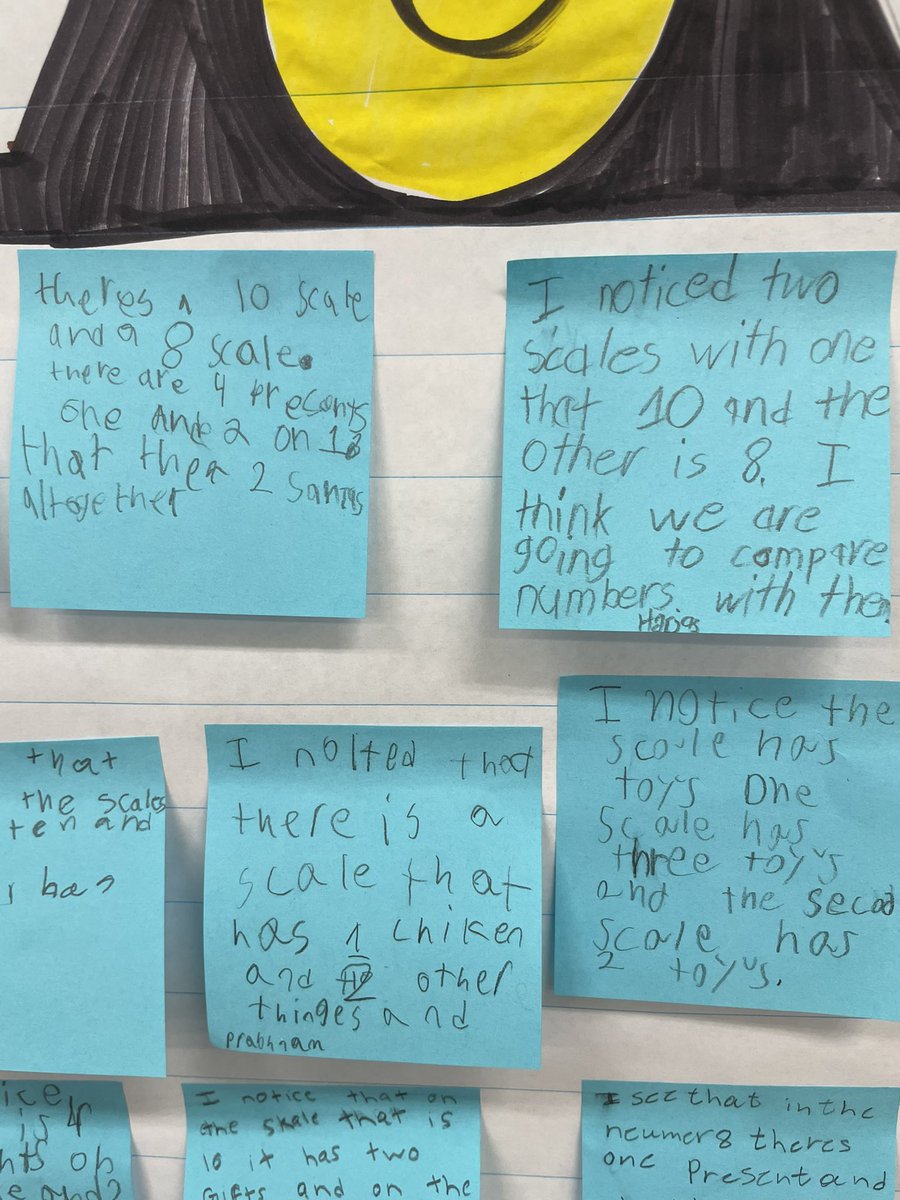 theres a 10 scale
and a 8 scale.
there are 4 preconts
one and 2 on 1
that ther 2 santas
altogether
I noticed two
scales with one
that 10 and the
other is 8. I
think we are
going to compare
numbers with the
that
the scales
ten and
has
I nolted that
there is a
scale that
has 1 chiken
and 2 other
thinges and
prabhnam
I notice the
scale has
toys One
scale has
three toyus
and the secod
scale has
2 toyus.
ice
is 4
nts on
e and 2
I notice that on
the skale that is
10 it has two
Gifts and on the
I see that in the
neumer 8 theres
one Present and